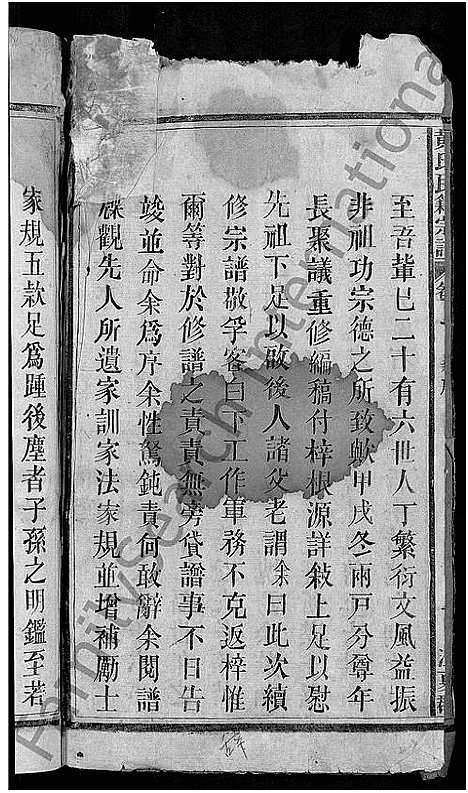 黃氏宗譜
卷一
至吾輩已二十有六世人丁繁衍文風益振
非祖功宗德之所致歟甲戌冬兩戸分尊年
長聚議重修編稿付梓根源詳敍上足以慰
先祖下足以啟後人諸父老謂余曰此次續
修宗譜敬孚客白下工作軍務不克返梓惟
爾等對於修譜之責責無旁貸譜事不日告
竣並命余爲序余性駑鈍責何敢辭余閱譜
觀先人所遺家訓家法家規並增補勵士
家規五款足爲踵後塵者子孫之明鑑至若
江夏
FamilySearch International